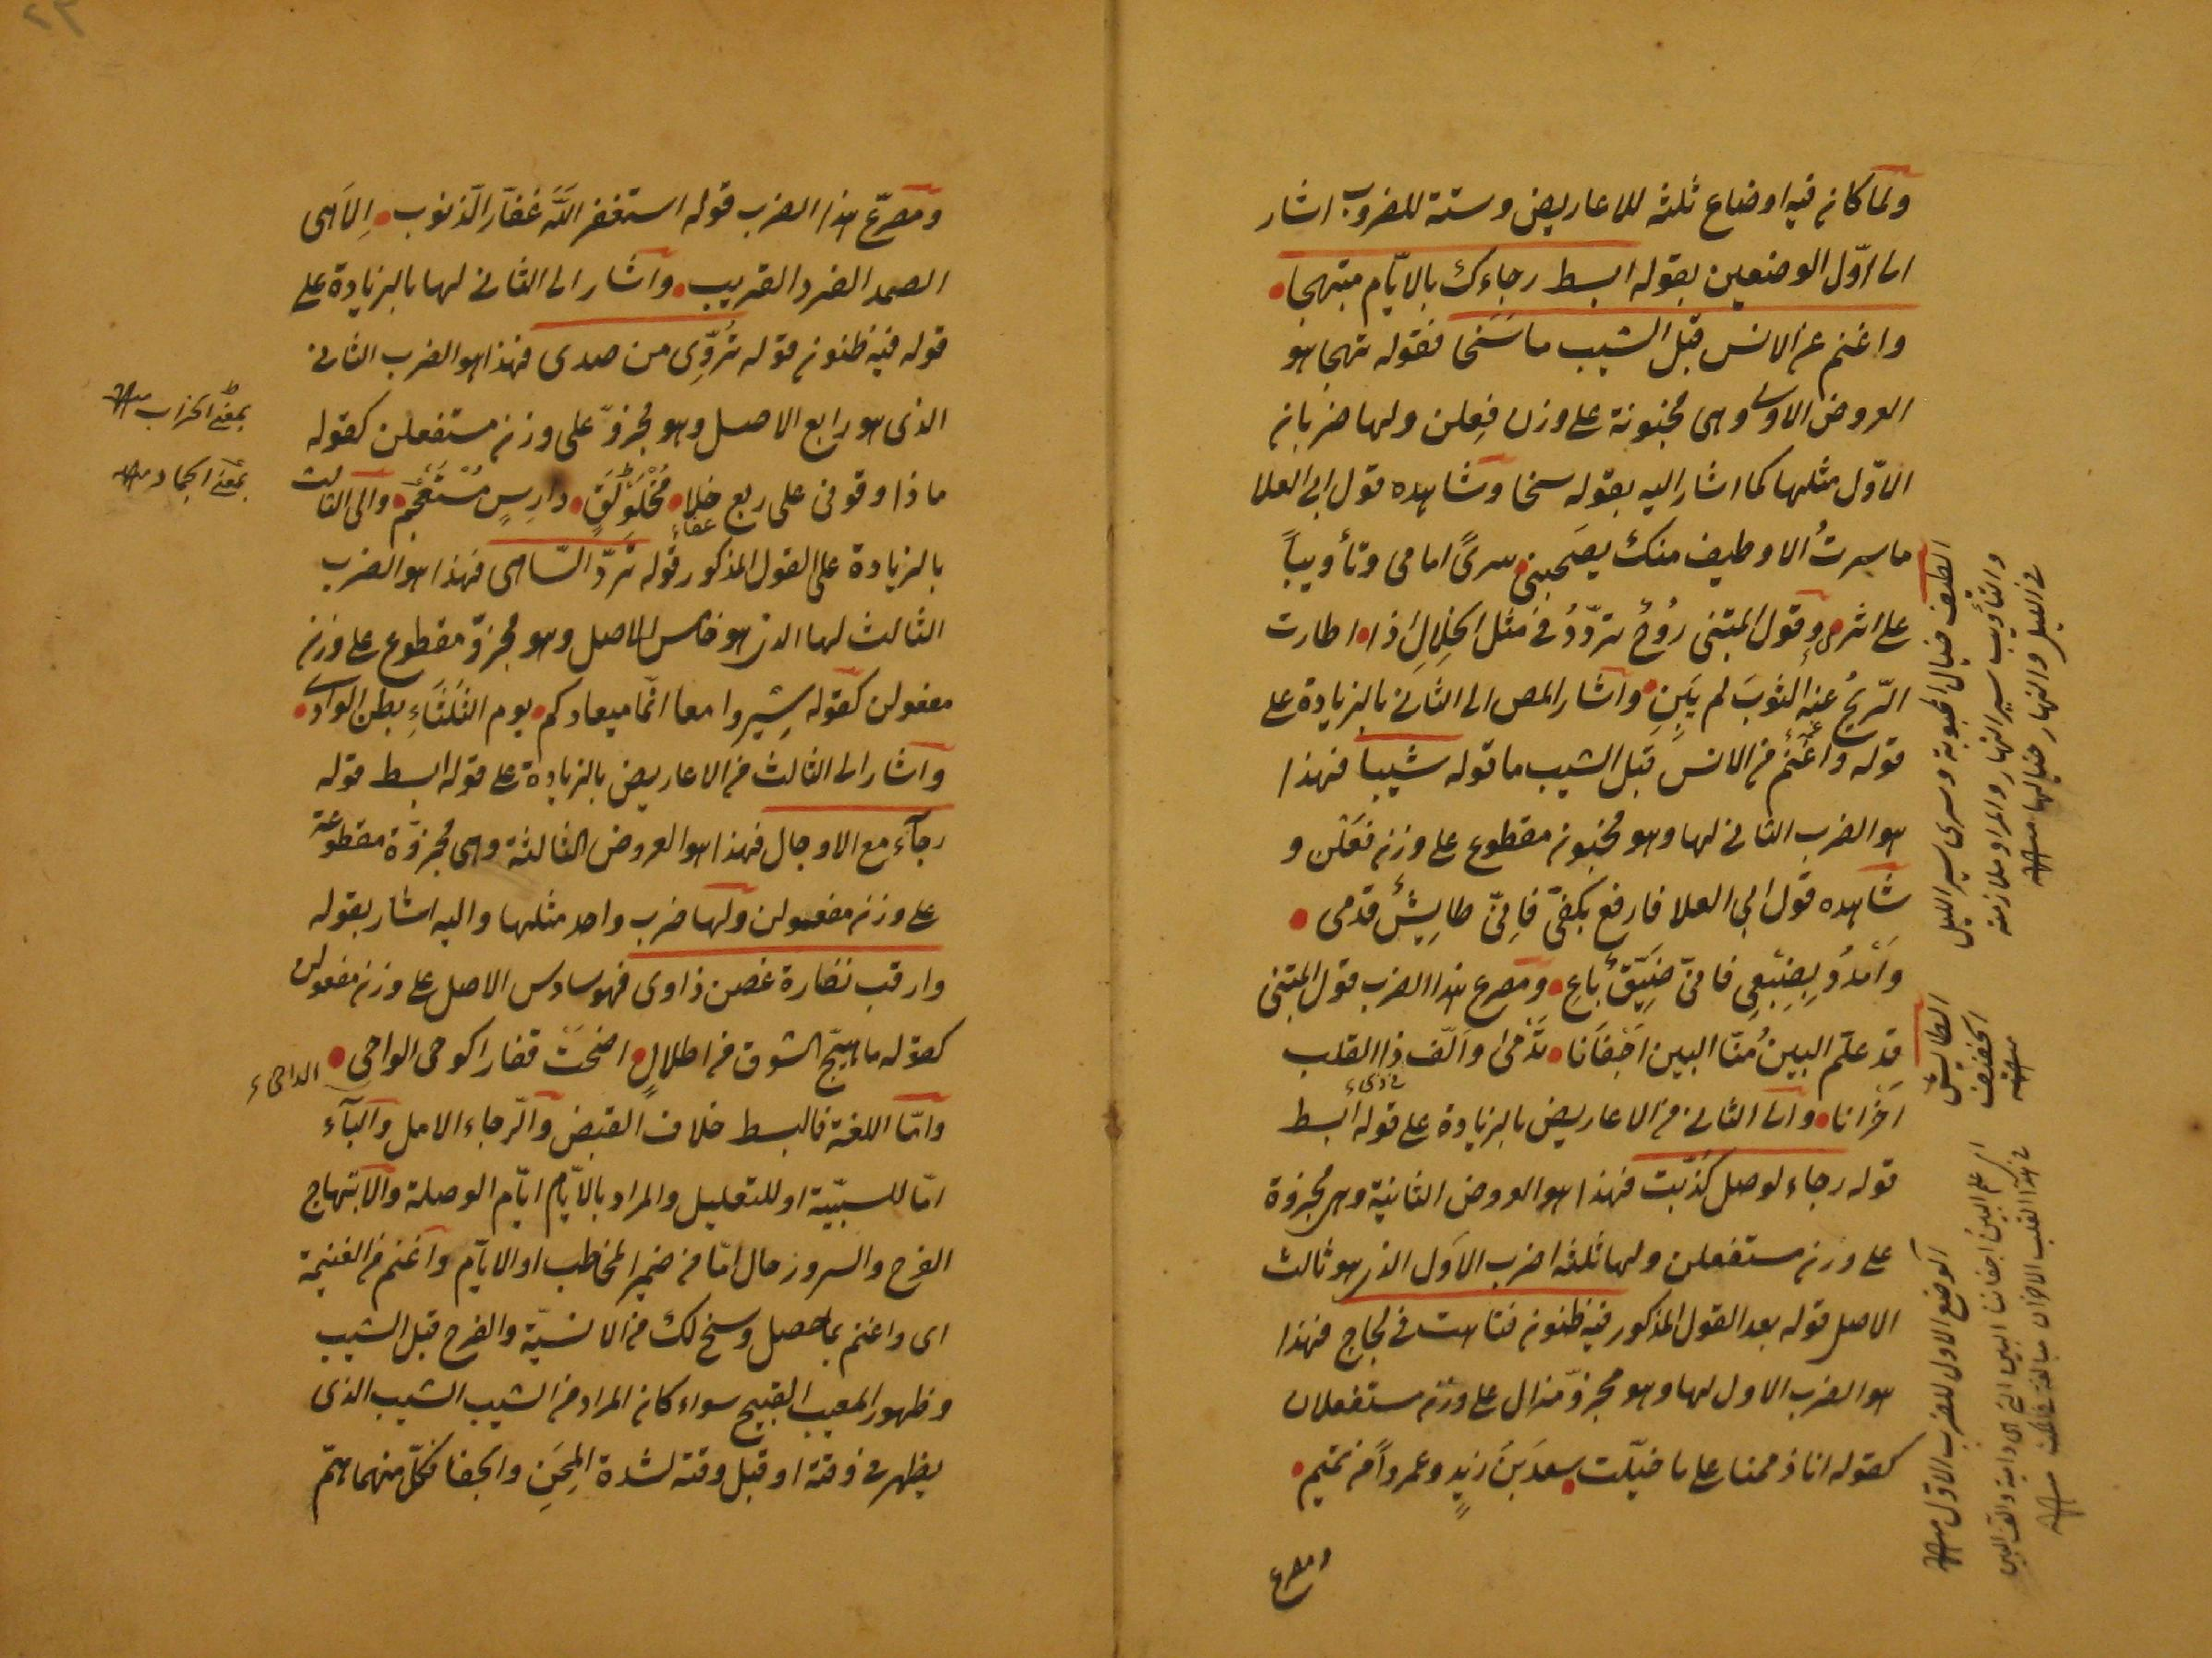 ولما كان فيه اوضاع ثلثه للاعاريض وستة للضروب اشار
الى اوّل الوضعين بقوله ابسط رجاءك بالايّام مبتهجا
واغنم من الانس قبل الشيب ما سَنَحا فقوله تهجا هو
العروض الاولى وهى مخبونة على وزن فِعِلن ولها ضربان
الاوّل مثلها كما اشار اليه بقوله سنحا وشاهده قول ابى العلا
ما سرتُ الا وطيف منك يصحبنى سرىً امامى وتأويباً
على اثرى وقول المتنبى رُوحٌ تردّدُ فى مثل الخِلالِ اذا اطارت
الرّيحُ عنه الثوبَ لم يَبِنِ واشار المص الى الثانى بالزيادة على
قوله واغنم من الانس قبل الشيب ما قوله شيبا فهذا
هو الضرب الثانى لها وهو مخبون مقطوع على وزن فعَلن و
شاهده قول ابى العلا فارفع بكفىّ فانّى طايِشٌ قدمى
وامْدُد بِضبْعِى فانىّ ضيّقٌ باعِ ومصرع هذا الضرب قول المتنبى
قد علّم البينُ منّا البين اجْفَانَا تَدْمىٰ والّف ذا القلب
فى ذى
احْزانا والى الثانى من الاعاريض بالزيادة على قوله ابسط
قوله رجاء لوصل كُذّبت فهذا هو العروض الثانية وهى مجزوة
على وزن مستفعلن ولها ثلثه اضرب الاوّل الذى هو ثالث
الاصل قوله بعد القول المذكور فيه ظنون فتاهت فى لجاج فهذا
هو الضرب الاول لها وهو مجزوّ مذال على وزن مستفعلان
كقوله انا ذممنا على ما خيّلت سعدَ بنَ زيدٍ وعمرواً من تميم
ومصرع
الطيف خيال المحبوبة وسرى سير الليل
والتأويب سير النهار والمراد ملازمة
فى الليل والنهار خيالها منه
الطايش
الخفيف
منه
اى علم البين اجفاننا البين التى اى دامية والف البين
فى هذا القلب الاحزان مبالغة فى ذلك منه
الوضع الاول للضرب الاوّل منه
ومصرّع هذا الضرب قوله استغفر اللّه غفّار الذّنوب اِلٰاهى
الصمد الفرد القريب واشار الى الثانى لها بالزيادة على
قوله فيه ظنون قوله تُروّى من صدى فهذا هو الضرب الثانى
الذى هو رابع الاصل وهو مجزوّ على وزن مستفعلن كقوله
ماذا وقوفى على ربع خلا مُخْلَوْلَقٍ دارِسٍ مُسْتَعْجَم والى الثالث
عفاء
بالزيادة على القول المذكور قوله تردّ السّاهى فهذا هو الضرب
الثالث لها الذى هو خامس الاصل وهو مجزوّ مقطوع على وزن
مفعولن كقوله سِيروا معا انّما ميعادكم يوم الثلثاءِ بطن الوادى
واشار الى الثالث من الاعاريض بالزيادة على قوله ابسط قوله
رجآء مع الاوجال فهذا هو العروض الثالثة وهى مجزوّة مقطوعة
على وزن مفعولن ولها ضرب واحد مثلها واليه اشار بقوله
وارقب نضارة غصن ذاوى فهو سادس الاصل على وزن مفعولن
كقوله ما هيّج الشوق من اطلالٍ اضحَتْ قفارا كوحى الواحى
واما اللغة فالبسط خلاف القبض والرّجاء الامل والبآء
امّا للسببيّة او للتعليل والمراد بالايّام ايّام الوصلة والابتهاج
الفرح والسرور حال امّا من ضمير المخاطب او الايّام واغنم من الغنيمة
اى واغنم بما حصل وسنح لك من الانسيّة والفرح قبل الشيب
وظهور المعيب القبيح سواء كان المراد من الشيب الشيب الذى
يظهر فى وقته او قبل وقته لشدة المِحَنِ والجفا فكلّ منهما همّ
بمعنى الخراب منه
بمعنى الجماد منه